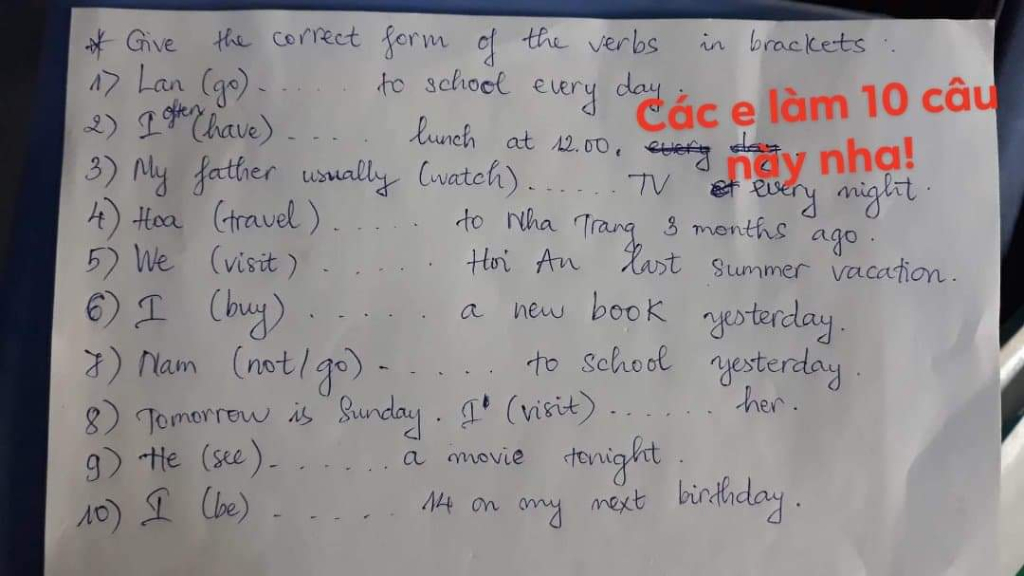 * Give the correct form of the verbs in brackets :
1) Lan (go) ...... to school every day.
2) I often (have) .... lunch at 12.00. every day
3) My father usually (watch) ...... TV et every night.
4) Hoa (travel) ...... to Nha Trang 3 months ago.
5) We (visit) ...... Hoi An last summer vacation.
6) I (buy) ...... a new book yesterday.
7) Nam (not/go) ...... to school yesterday.
8) Tomorrow is Sunday. I (visit) ...... her.
9) He (see) ...... a movie tonight.
10) I (be) ...... 14 on my next birthday.
Các e làm 10 câu
này nha!